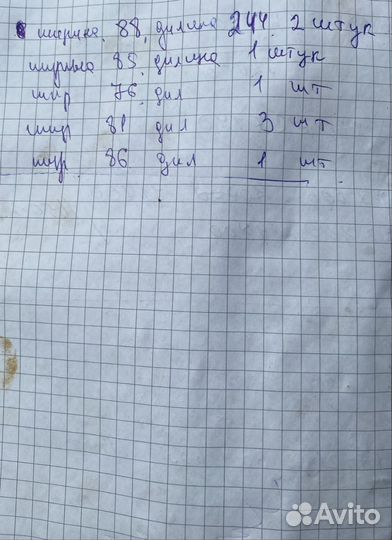 ширина 88, длина 244. 2 штук
ширина 85, длина 1 штук
шир 76, дил 1 шт
шир 81 дил 3 шт
шир 86 дил 1 шт.
Avito